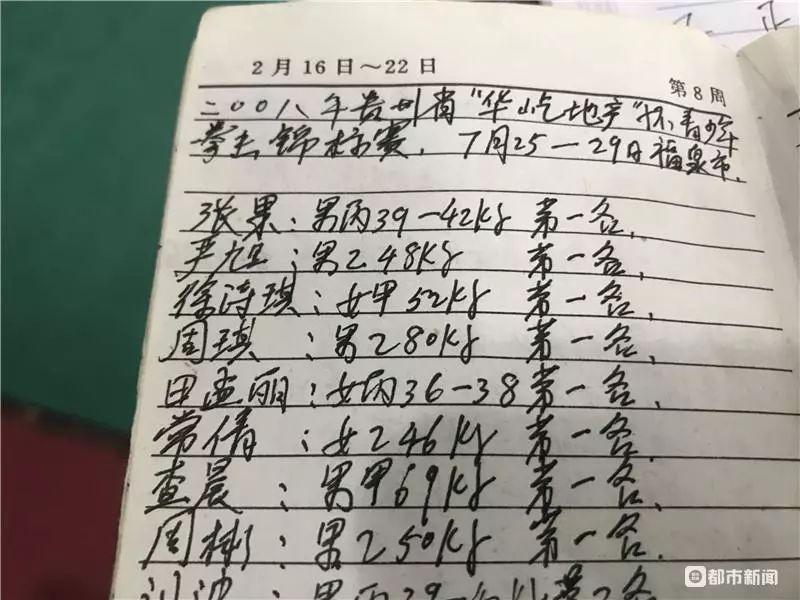 2月16日～22日
第8周
二〇〇八年贵州省“华屹地产”杯青少年
拳击锦标赛．7月25—29日福泉市．
张果：男丙39—42kg 第一名．
尹旭：男乙48kg 第一名．
徐诗琪：女甲52kg 第一名．
周琪：男乙80kg 第一名．
田孟丽：女丙36—38第一名．
常倩：女乙46kg 第一名．
查晨：男甲69kg 第一名．
周彬：男乙50kg 第一名．
男丙39
都市新闻